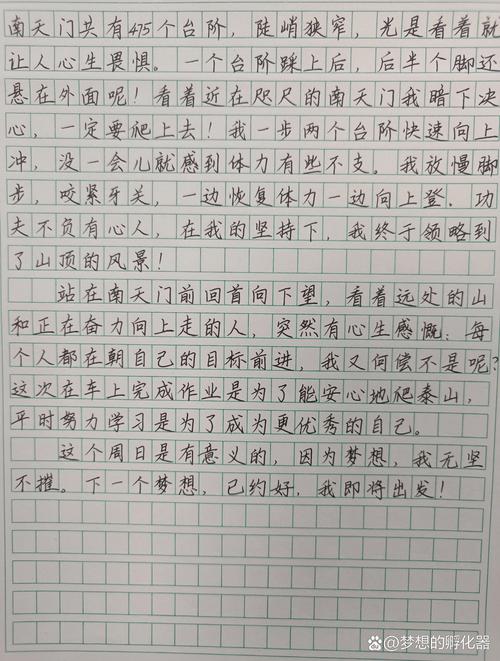 南天门共有475个台阶，陡峭狭窄，光是看着就
让人心生畏惧。一个台阶踩上后，后半个脚还
悬在外面呢！看着近在咫尺的南天门我暗下决
心，一定要爬上去！我一步两个台阶快速向上
冲，没一会儿就感到体力有些不支。我放慢脚
步，咬紧牙关，一边恢复体力一边向上登．功
夫不负有心人，在我的坚持下，我终于领略到
了山顶的风景！
站在南天门前回首向下望，看着远处的山
和正在奋力向上走的人，突然有心生感慨：每
个人都在朝自己的目标前进，我又何偿不是呢？
这次在车上完成作业是为了能安心地爬泰山，
平时努力学习是为了成为更优秀的自己。
这个周日是有意义的，因为梦想，我无坚
不摧。下一个梦想，已约好，我即将出发！
@梦想的孵化器